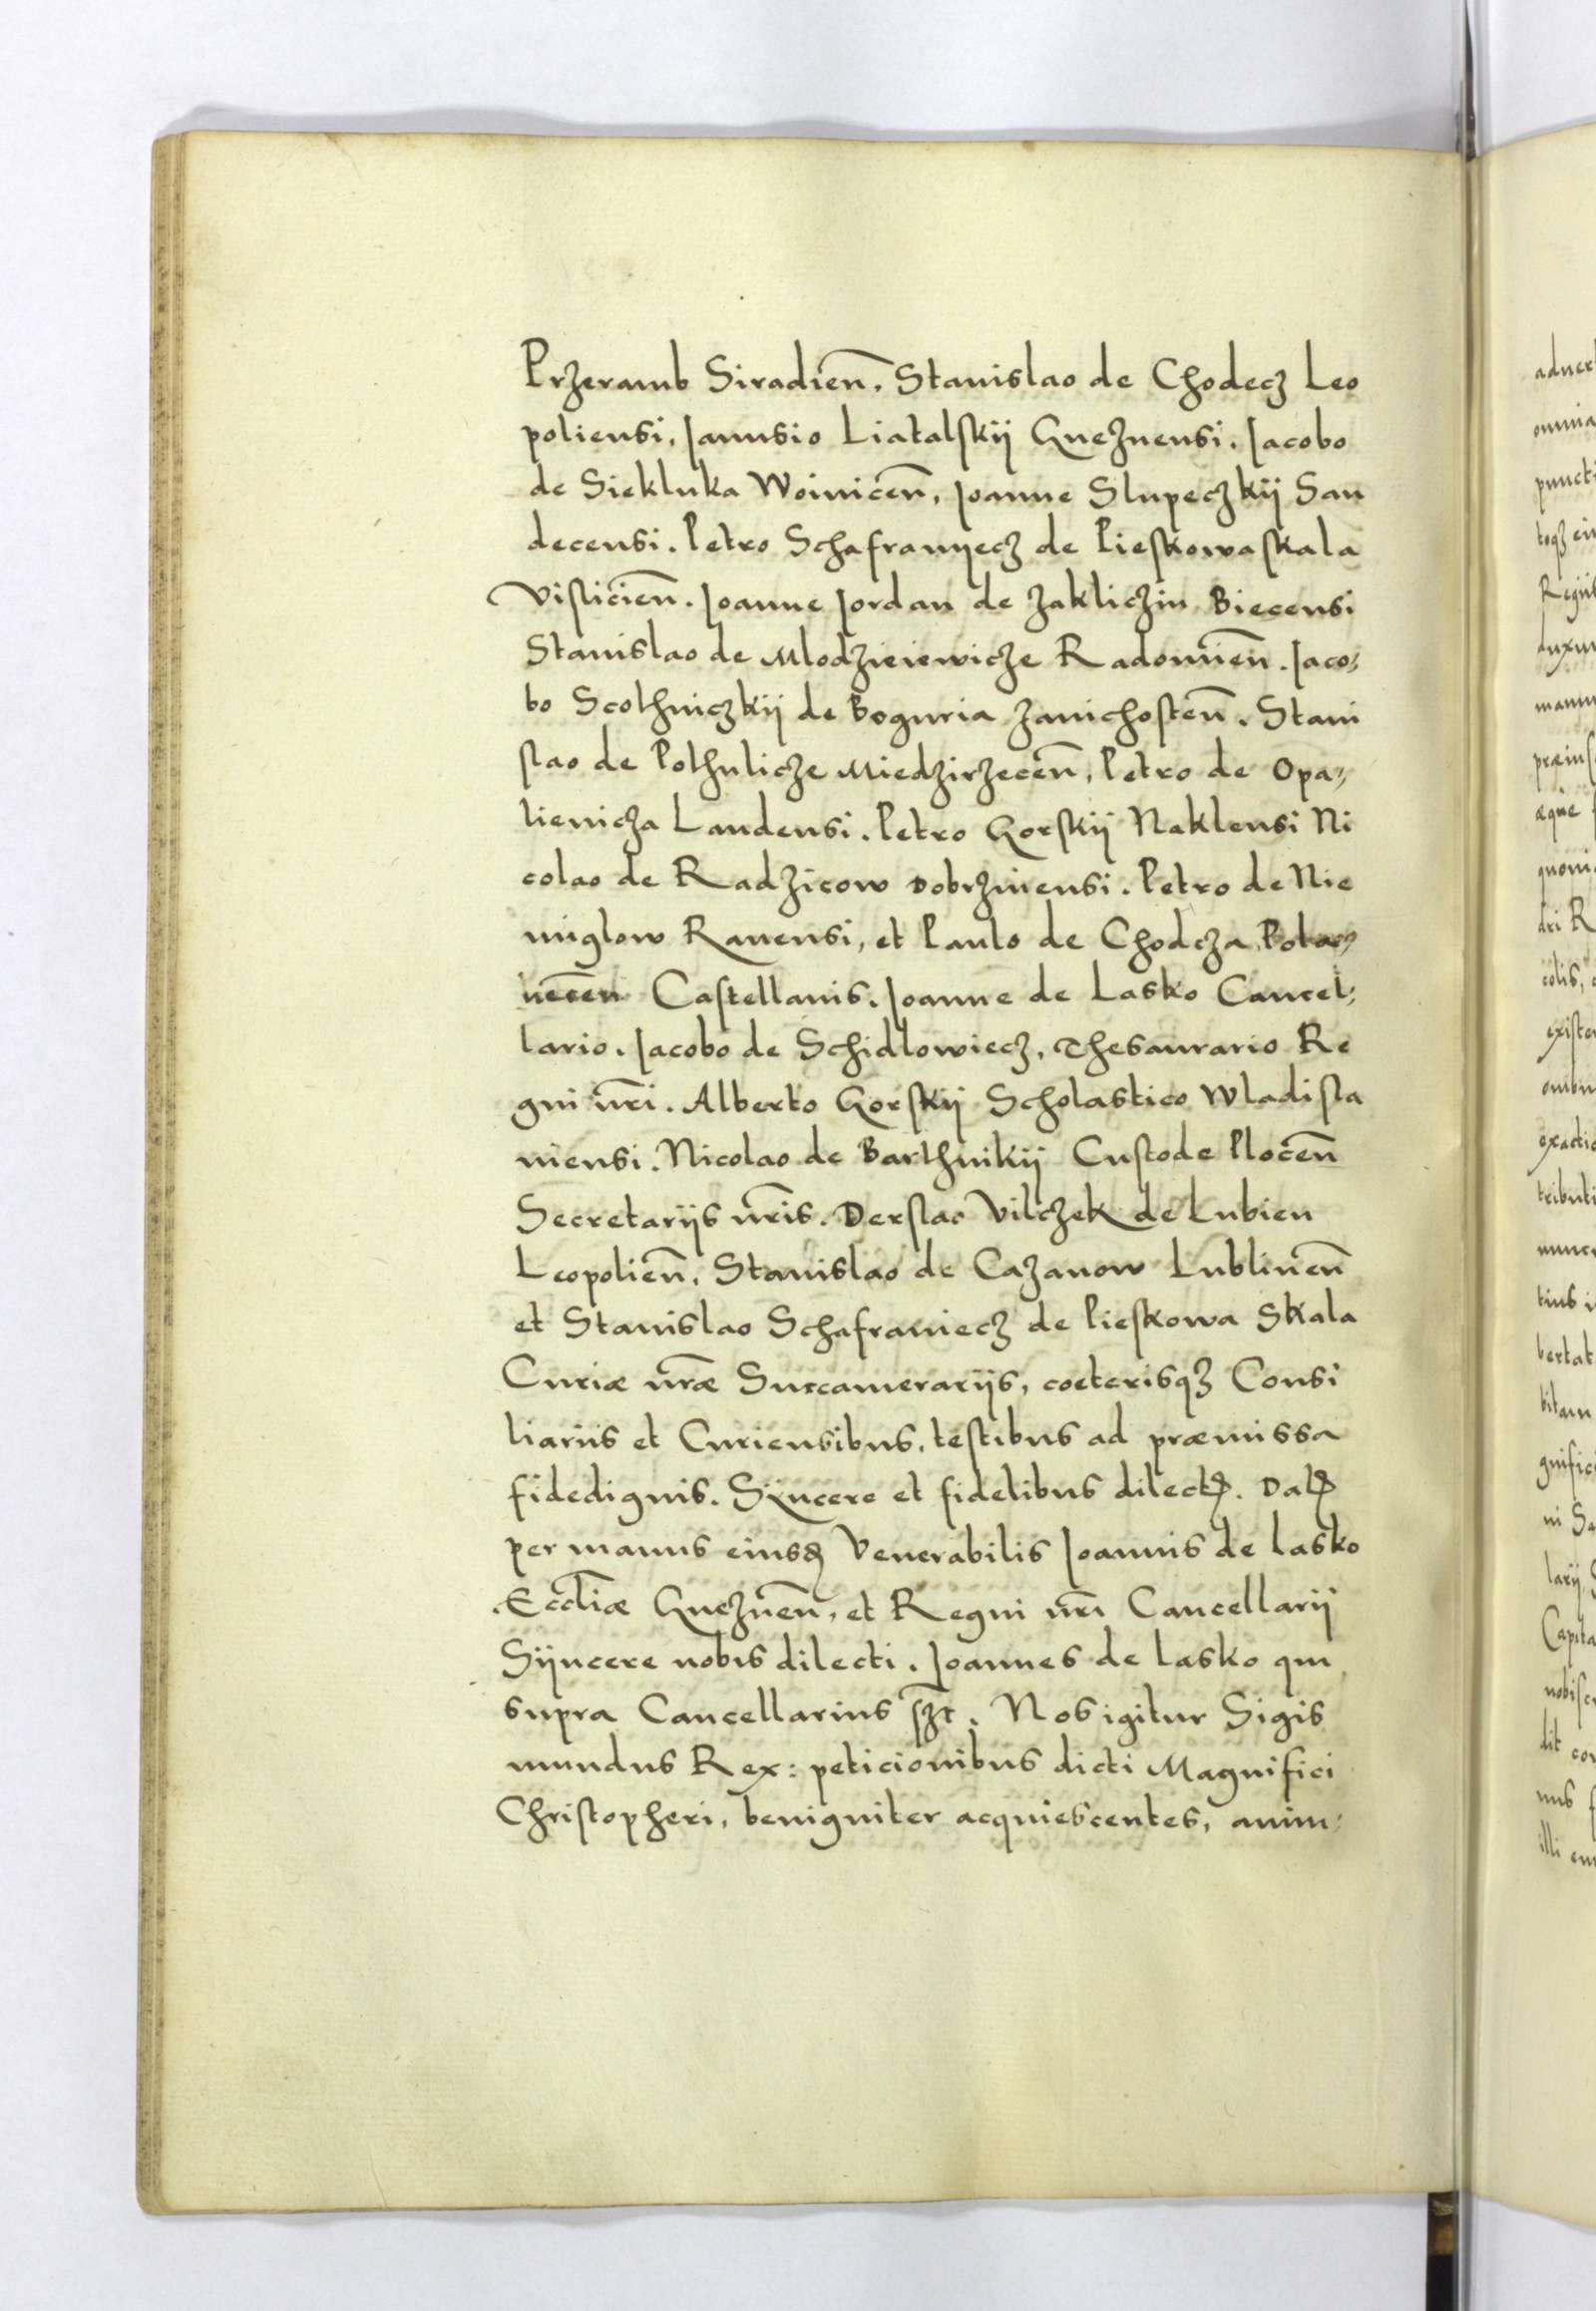 Przeramb Siradień. Stanislao de Chodecz Leo
poliensi, Janusio Liatalskij Gneznensi. Jacobo
de Siekluka Woiniceñ, Joanne Slupeczkij San
decensi. Petro Schafranyecz de Pieskowaskala
Visliciеñ. Joanne Jordan de Zakliczin Biecensi
Stanislao de Mlodzieiewicze Radomieñ. Jaco,
bo Scothniczkij de Boguria Zanichosteñ. Stani
slao de Pothulicze Miedzirzeceñ, Petro de Opa,
lienicza Landensi. Petro Gorskij Naklensi Ni
colao de Radzicow Dobrzinensi. Petro de Nie
miglow Ravensi, et Paulo de Chodcza Pola,
neceñ Castellanis. Joanne de Lasko Cancel,
lario. Jacobo de Schidlowiecz, Thesaurario Re
gni nr̃i. Alberto Gorskij Scholastico Wladisla
viensi. Nicolao de Barthnikij Custode Ploceñ
Secretarijs nr̃is. Derslao Vilczek de Lubien
Leopolieñ, Stanislao de Cazanow Lublineñ
et Stanislao Schafraniecz de Pieskowa Skala
Curiæ nr̃æ Succamerarijs, coeterisqꝫ Consi
liariis et Curiensibus, testibus ad præmissa
fidedignis. Sÿncere et fidelibus dilectꝭ. Datꝭ
per manus eiusꝺ Venerabilis Joannis de Lasko
Eccl̃iæ Gnezneñ, et Regni nr̃i Cancellarij
Sijncere nobis dilecti. Joannes de Lasko qui
supra Cancellarius sꝫt. Nos igitur Sigis
mundus Rex: peticionibus dicti Magnifici
Christopheri, benigniter acquiescentes, anim,